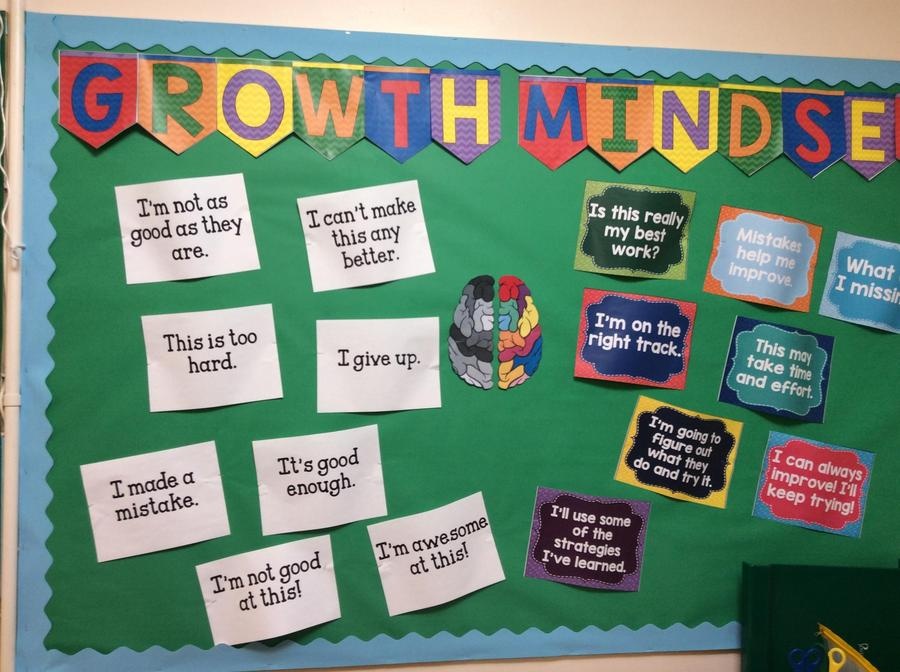 GROWTH MINDSE
I'm not as
good as they
are.
I can't make
this any
better.
This is too
hard.
I give up.
I made a
mistake.
It's good
enough.
I'm not good
at this!
I'm awesome
at this!
Is this really
my best
work?
Mistakes
help me
improve.
What
I missin
I'm on the
right track.
This may
take time
and effort.
I'm going to
figure out
what they
do and try it.
I can always
improve! I'll
keep trying!
I'll use some
of the
strategies
I've learned.